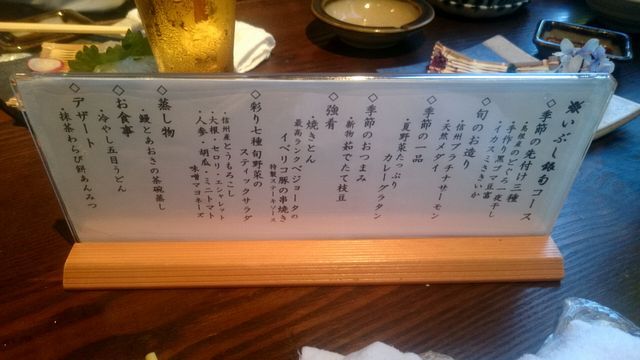 楽いぶし銀旬コース
◇季節の先付け三種
・島根産のどぐろ一夜干し
・手作り黒ゴマ豆富
・イカミミさきいか
◇旬のお造り
・信州プラチナサーモン
・天然メダイ
◇季節の一品
・夏野菜たっぷり
カレーグラタン
◇季節のおつまみ
・新物 茹でたて枝豆
◇強肴
・焼きとん
最高ランクベジョータの
イベリコ豚の串焼き
特製ステーキソース
◇彩り七種旬野菜の
スティックサラダ
・信州産とうもろこし
・大根・セロリ・エシャレット
・人参・胡瓜・ミニトマト
味噌マヨネーズ
◇蒸し物
・鰻とあおさの茶碗蒸し
◇お食事
・冷やし五目うどん
◇デザート
・抹茶わらび餅あんみつ